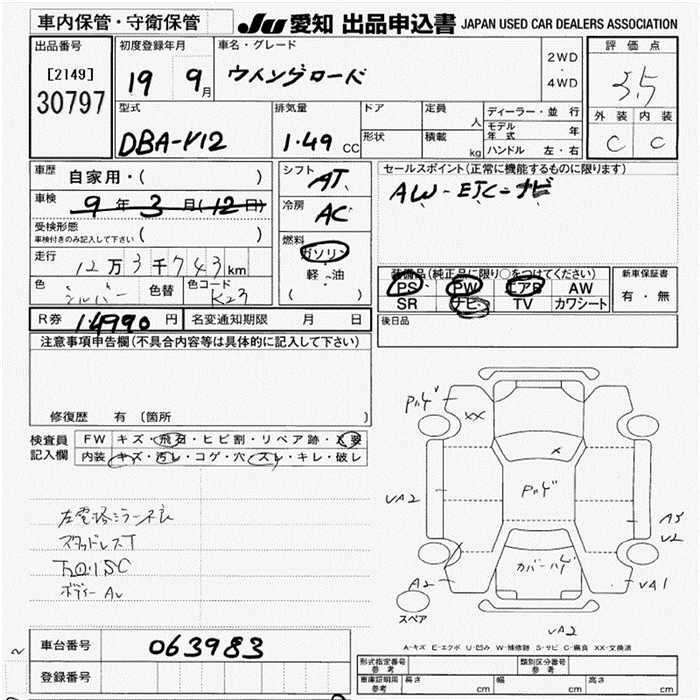 車内保管・守衛保管
JU 愛知 出品申込書 JAPAN USED CAR DEALERS ASSOCIATION
出品番号
[2149]
30797
初度登録年月
19 9月
車名・グレード
ウイングロード
2WD
・
4WD
評価点
3.5
外装 内装
C C
型式
DBA-Y12
排気量
1.49 CC
ドア
形状
定員 人
積載 kg
ディーラー・並行
モデル年式 年
ハンドル 左・右
車歴 自家用・( )
車検 9年3月(12日)
受検形態
車検付きのみ記入して下さい ( )
走行 12万3千743km
色 シルバー
色替
色コード K23
シフト AT
冷房 AC
燃料
ガソリン
軽・油
( )
セールスポイント(正常に機能するものに限ります)
AW-ETC-ナビ
装備品(純正品に限り○をつけてください)
PS PW エアB AW
SR ナビ TV カワシート
新車保証書
有・無
後日品
R券 14990円 名変通知期限 月 日
注意事項申告欄(不具合内容等は具体的に記入して下さい)
修復歴 有 〔箇所
検査員
記入欄
FW キズ・飛石・ヒビ割・リペア跡・X要
内装 キズ・汚レ・コゲ・穴・スレ・キレ・破レ
スタッドレスT
ボディー AU
XX
X
UA2
A2
UA1
UA2
スペア
A-キズ E-エクボ U-凹み W-補修跡 S-サビ C-腐食 XX-交換済
車台番号 063983
登録番号
型式指定番号
参考
類別区分番号
参考
車庫証明用
参考
長さ cm 幅 cm 高さ cm